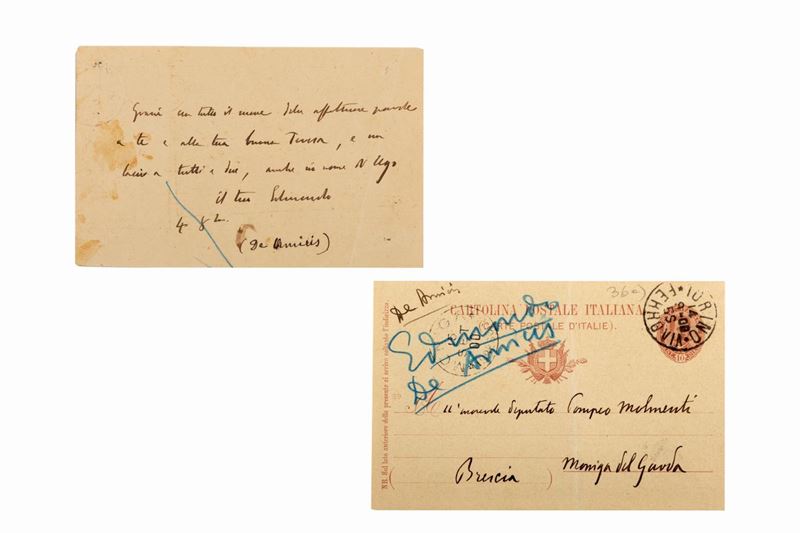 Grazie con tutto il cuore delle affettuose parole
a te e alla tua buona Teresa, e un
bacio a tutti e due, anche in nome d' Ugo
il tuo Edmondo
(De Amicis)
36a)
De Amicis
CARTOLINA POSTALE ITALIANA
(CARTE POSTALE D'ITALIE).
Edmondo
De Amicis
TORINO FERROVIA
10
NB. Sul lato anteriore della presente si scrive soltanto l'indirizzo.
All'onorevole Deputato Pompeo Molmenti
Brescia ) Moniga del Garda